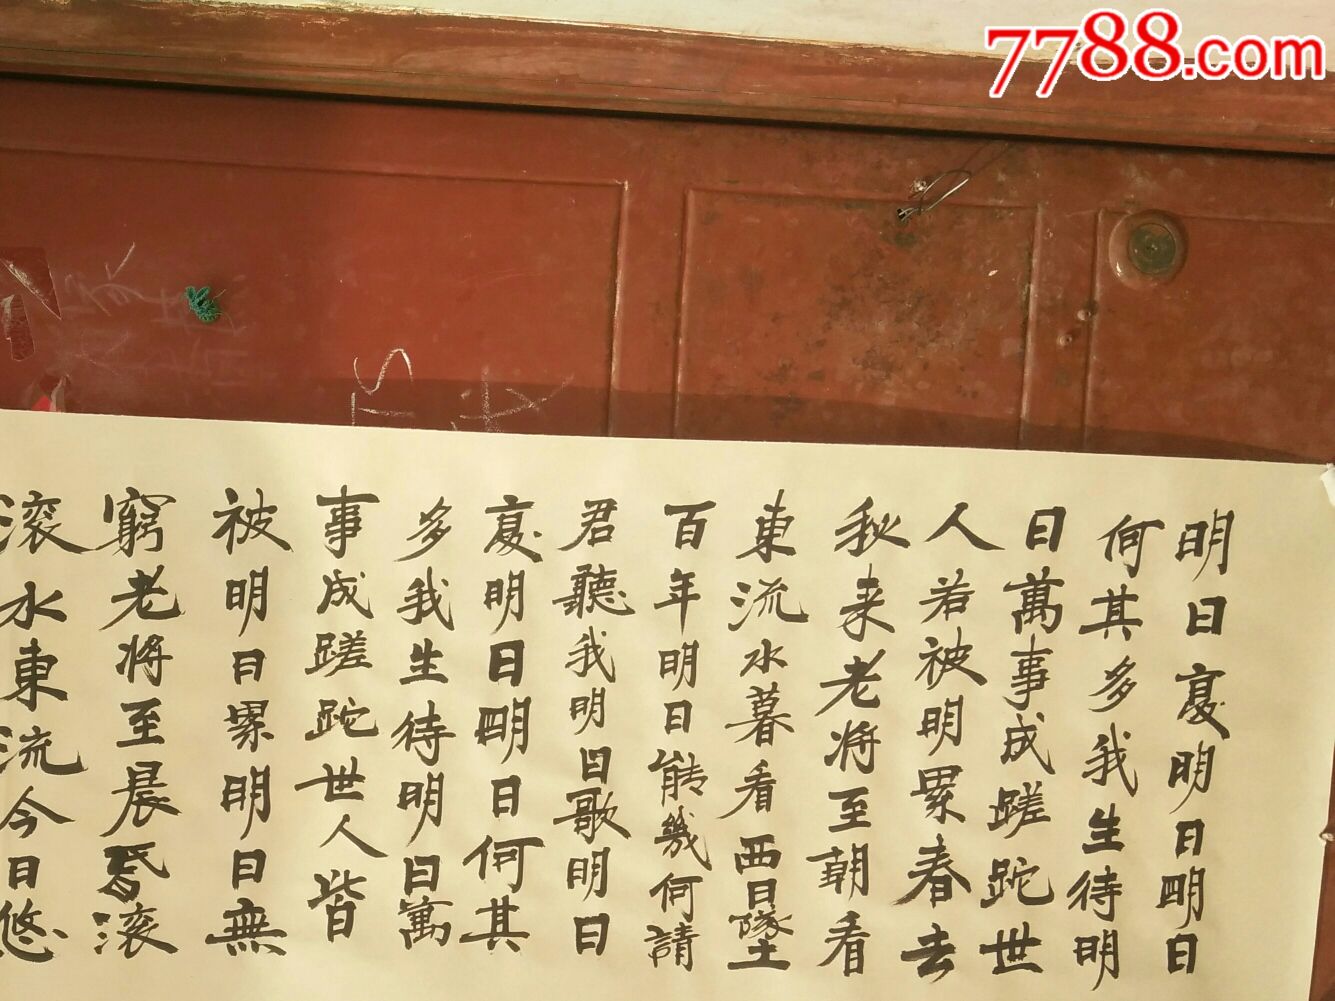 7788.com
明日夏明日明日
何其多我生待明
日萬事成蹉跎世
人若被明累春去
秋来老将至朝看
東流水暮看西日墜
百年明日能幾何請
君聽我明日歌明日
夏明日明日何其
多我生待明日萬
事成蹉跎世人皆
被明日累明日無
窮老将至晨昏滾
滚水東流今日悠